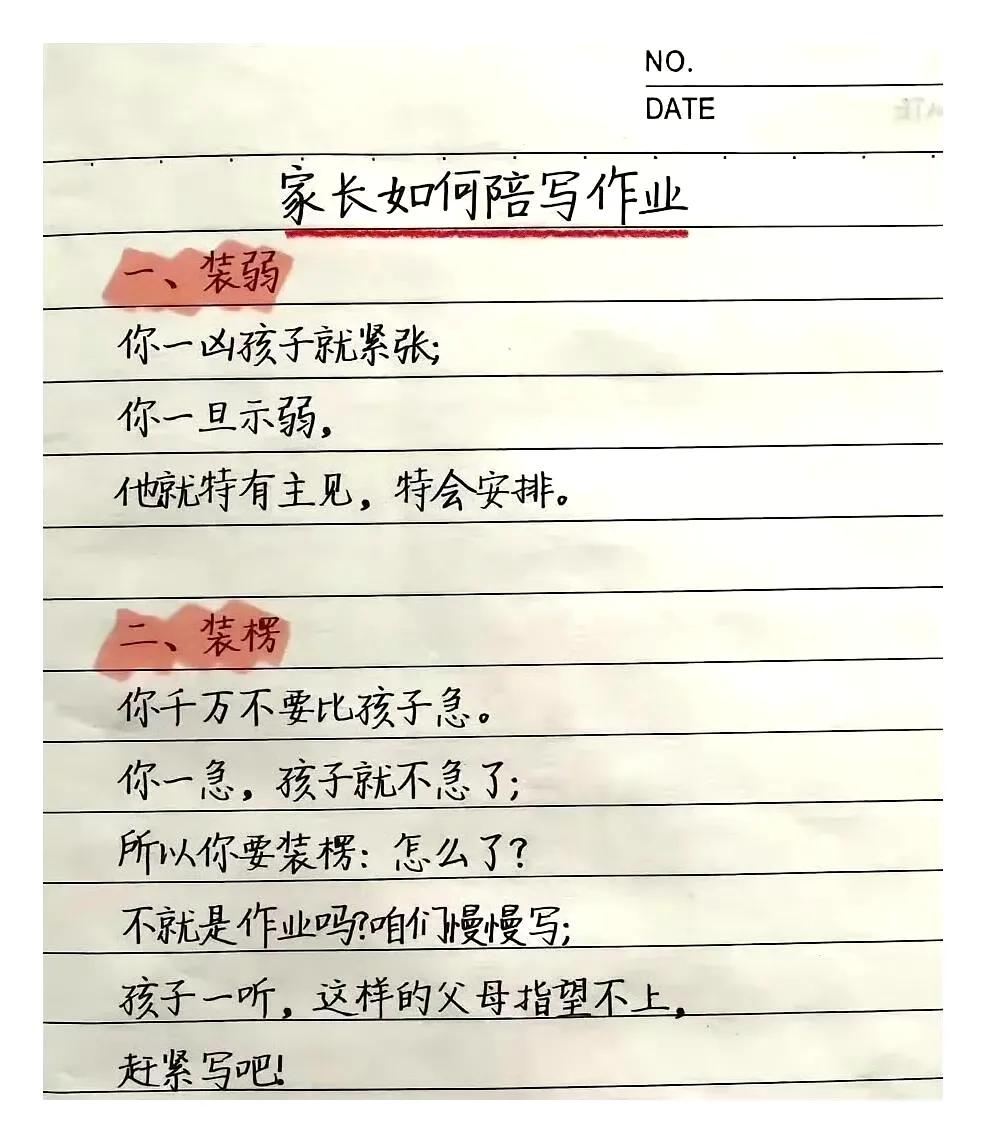 NO.
DATE
家长如何陪写作业
一、装弱
你一凶孩子就紧张;
你一旦示弱,
他就特有主见,特会安排。
二、装楞
你千万不要比孩子急。
你一急,孩子就不急了;
所以你要装楞:怎么了?
不就是作业吗?咱们慢慢写;
孩子一听,这样的父母指望不上,
赶紧写吧!